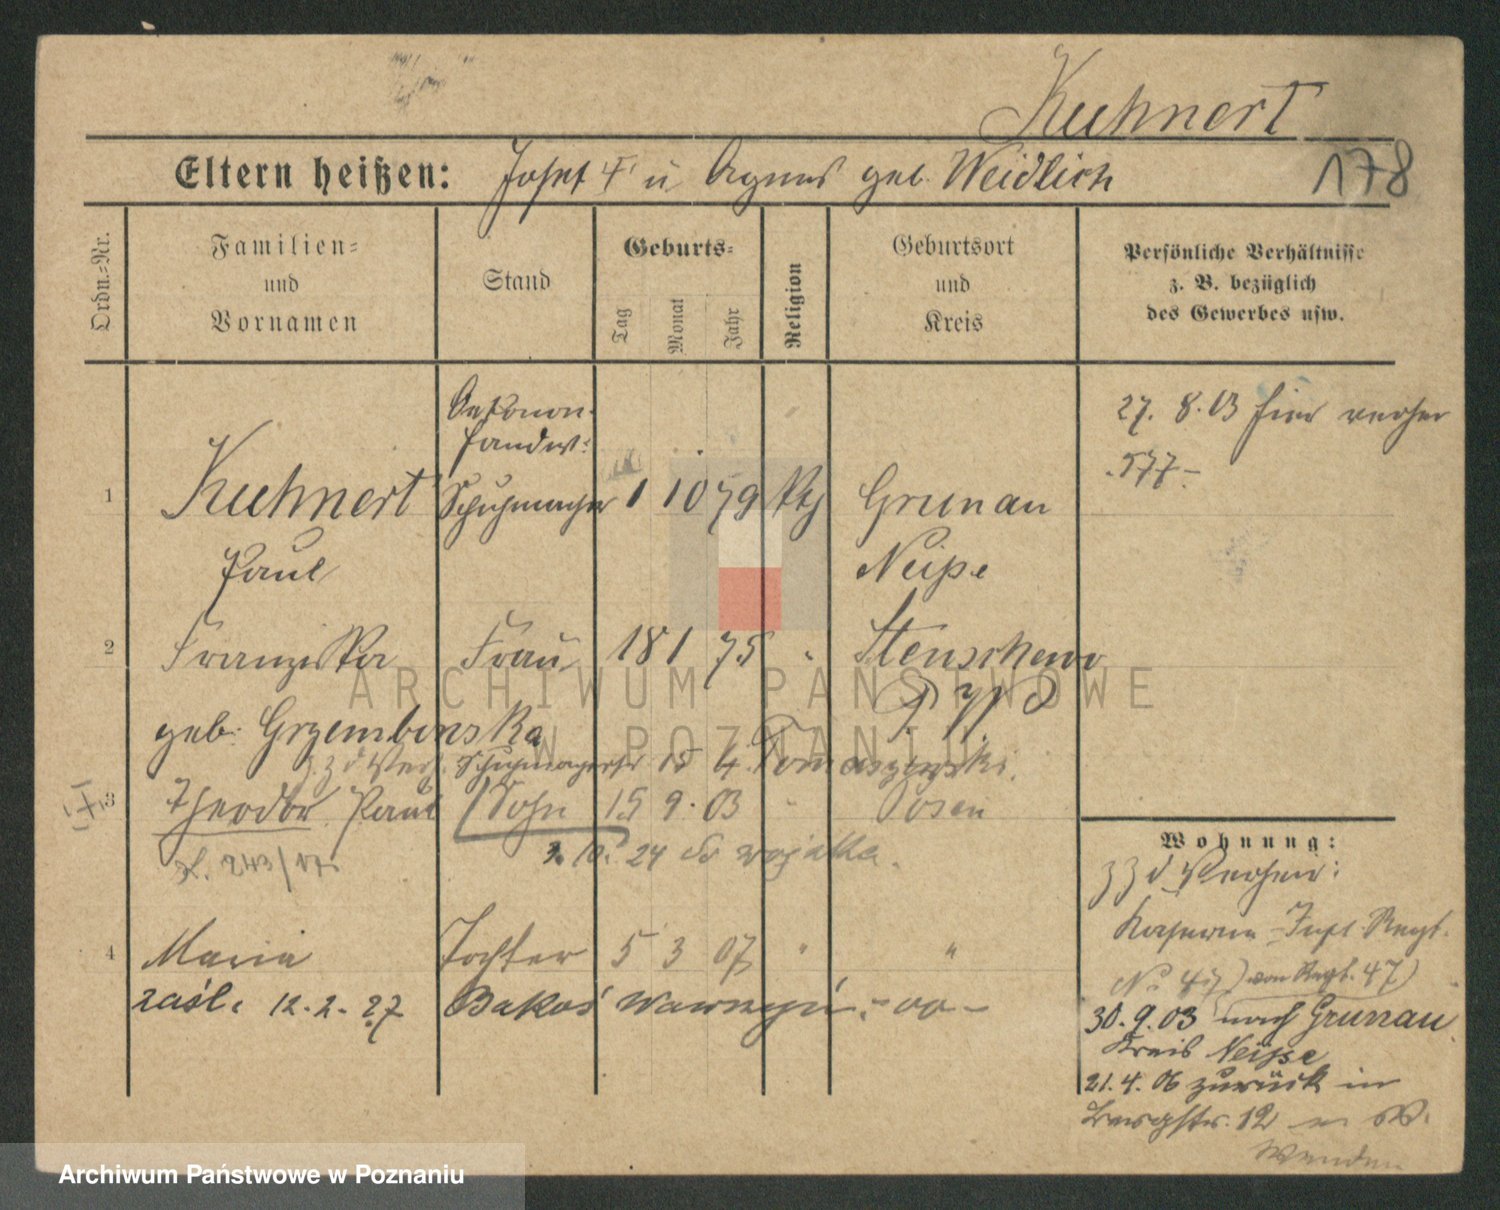 Kuhnert
Eltern heißen: Josef † u Agnes geb. Weidlich
178
Ordn.=Nr.
Familien=
und
Vornamen
Stand
Geburts=
Tag
Monat
Jahr
Religion
Geburtsort
und
Kreis
Persönliche Verhältnisse
z. B. bezüglich
des Gewerbes usw.
1
Kuhnert
Paul
Schuhmacher
1 10 79
Grunau
Neiße
27. 8. 03 hier
577
2
Franziska
geb. Grzembinska
Frau
18 1 75
"
Stenschewo
Schuhmacher 15 4. Tomaszewski.
3
Theodor Paul
Sohn
15 9. 03
"
Posen
243/17
10. 24 do wojska.
4
Maria
Tochter
5 3 07
"
"
zaśl. 12. 2. 27 Bakoś Wawrzyn
Wohnung:
Kaserne Inft. Regt.
No 47 von Regt. 47
30. 9. 03 nach Grunau
Kreis Neisse
21. 4. 06 zurück in
12
Wenden
ARCHIWUM PAŃSTWOWE
W POZNANIU
Archiwum Państwowe w Poznaniu